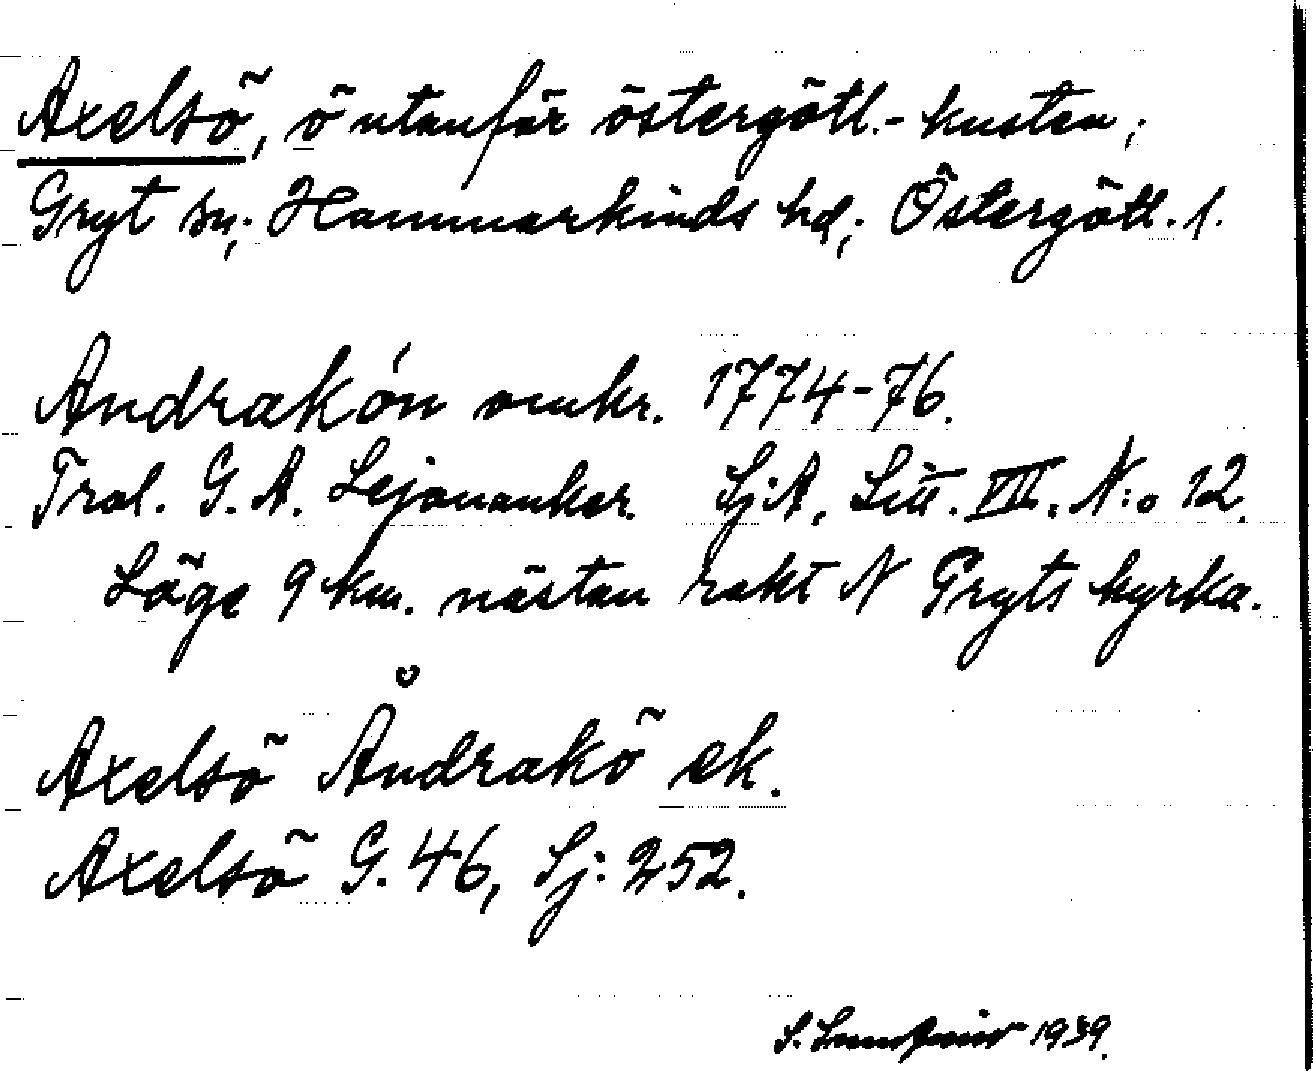 Axelsö, ö utanför östergötl.-kusten;
Gryt sn; Hammarkinds hd; Östergötl. l.
Andrakón omkr. 1774-76.
Trol. G. A. Lejonanker. Sj:A, Litt. VII. N:o 12.
Läge 9 km. nästan rakt N Gryts kyrka.
Axelsö Åndrakö ek.
Axelsö G. 46, Sj: 252.
S. Lundqvist 1939.